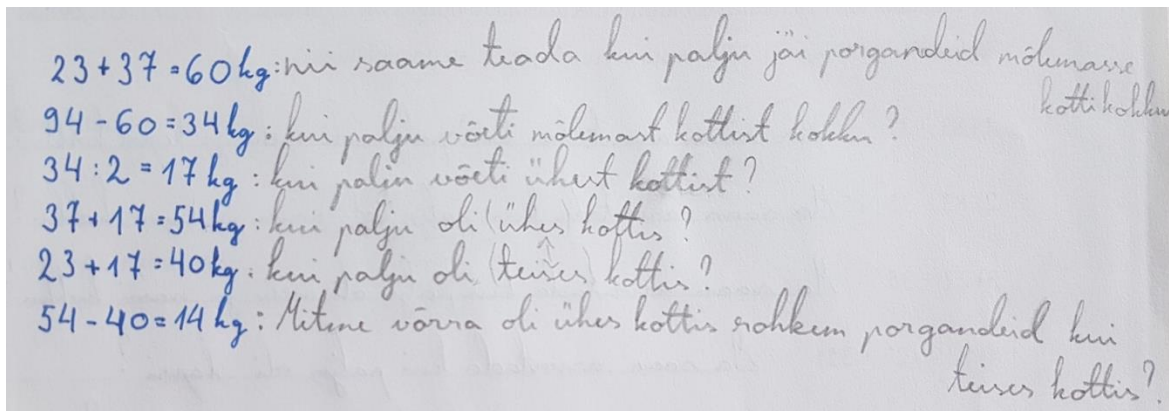 23+37=60kg: nii saame teada kui palju jäi porgandeid mõlemasse
kotti kokku
94-60=34kg: kui palju võeti mõlemast kottist kokku?
34:2=17kg: kui palju võeti ühest kottist?
37+17=54kg: kui palju oli (ühes kottis?
23+17=40kg: kui palju oli (teises) kottis?
54-40=14kg: Mitme võrra oli ühes kottis rohkem porgandeid kui
teises kottis?